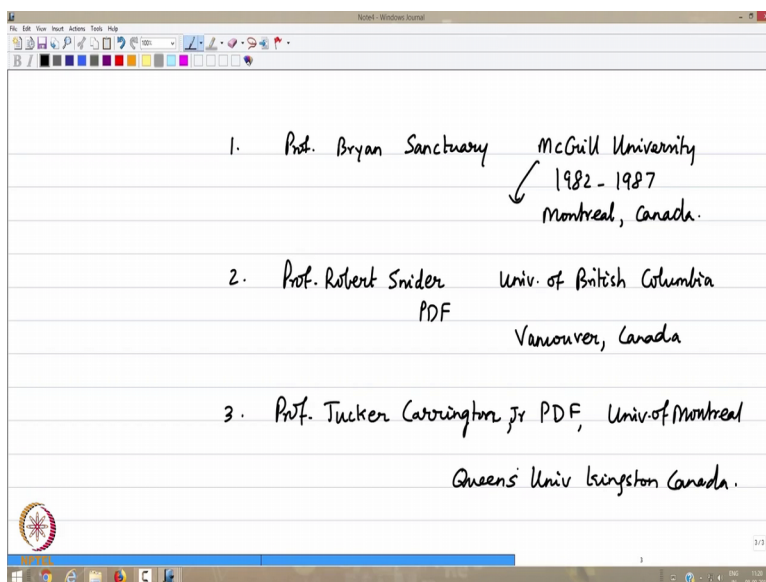 Note4 - Windows Journal
File Edit View Insert Actions Tools Help
100%
B I
1. Prof. Bryan Sanctuary McGill University
1982 - 1987
Montreal, Canada.
2. Prof. Robert Snider Univ. of British Columbia
PDF
Vancouver, Canada
3. Prof. Tucker Carrington, Jr PDF, Univ. of Montreal
Queens' Univ Kingston Canada.
3/3
NPTEL
3
ENG 11:28